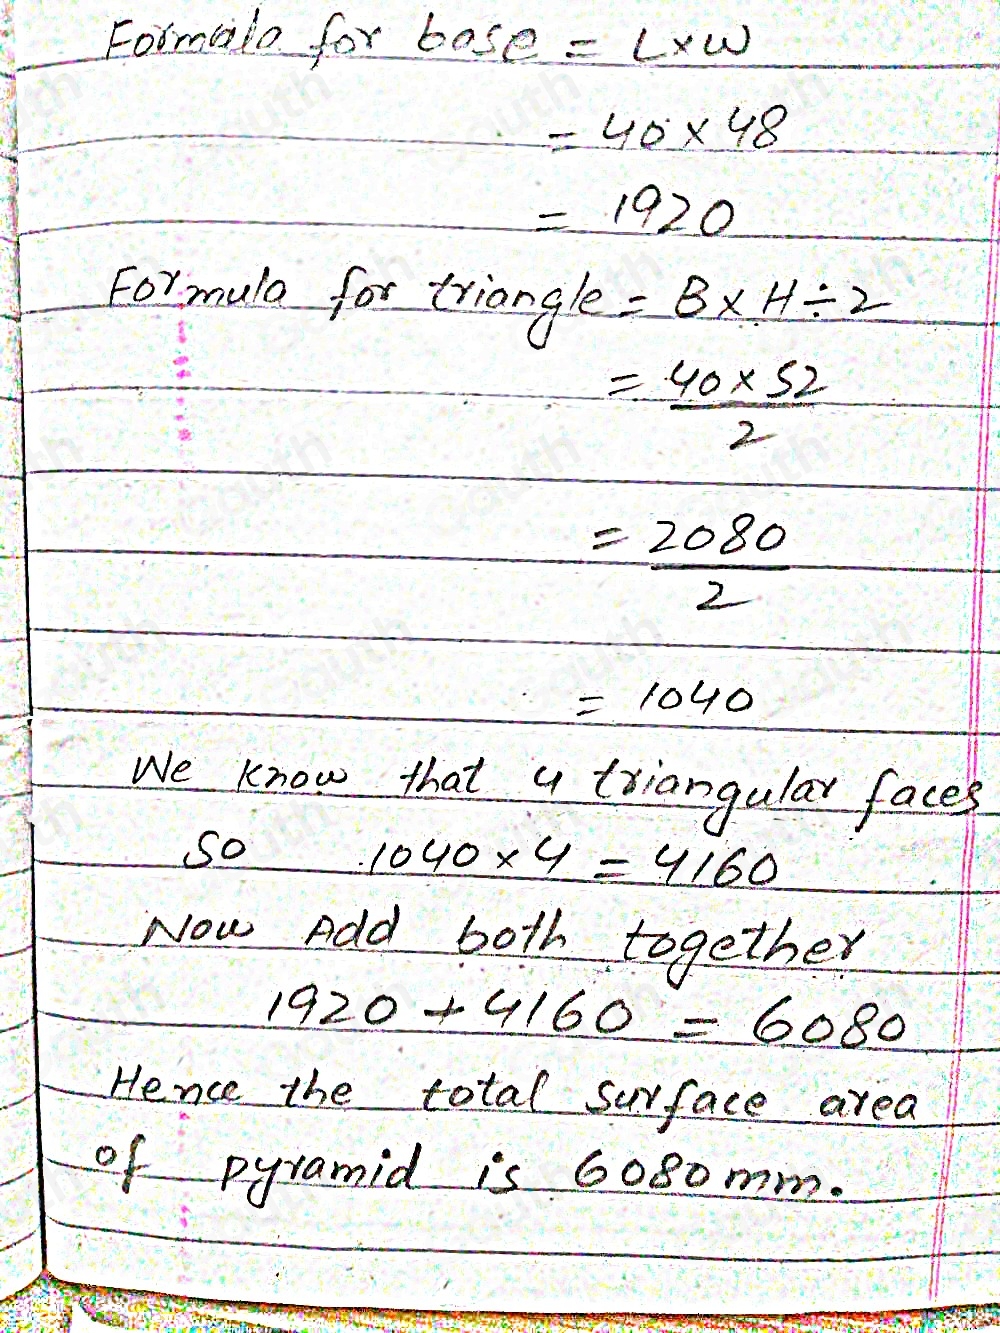 Formula for base = L×W
= 40 × 48
= 1920
Formula for triangle = B × H ÷ 2
= 40 × 52
2
= 2080
2
= 1040
We know that 4 triangular faces
So 1040 × 4 = 4160
Now Add both together
1920 + 4160 = 6080
Hence the total surface area
of pyramid is 6080 mm.